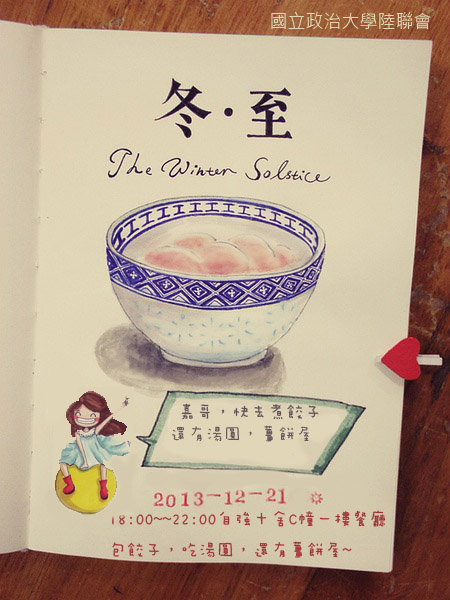 國立政治大學陸聯會
冬·至
The Winter Solstice
嘉哥，快去煮餃子
還有湯圓，薑餅屋
2013-12-21
18:00~~22:00自強十舍C幢一樓餐廳
包餃子，吃湯圓，還有薑餅屋~